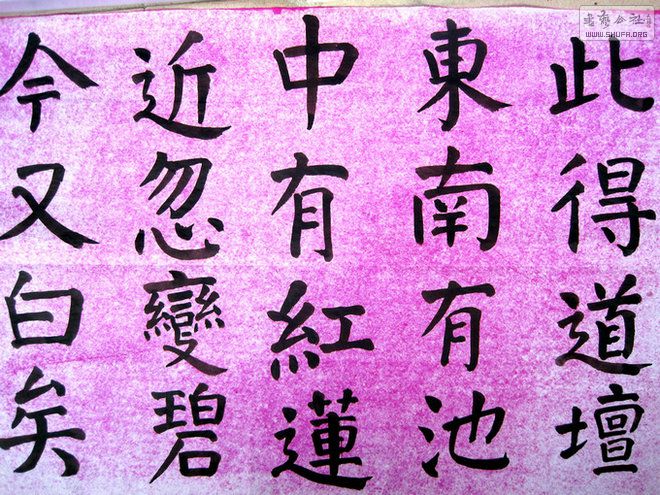 此得道壇
東南有池
中有紅蓮
近忽變碧
今又白矣
書法公社
WWW.SHUFA.ORG